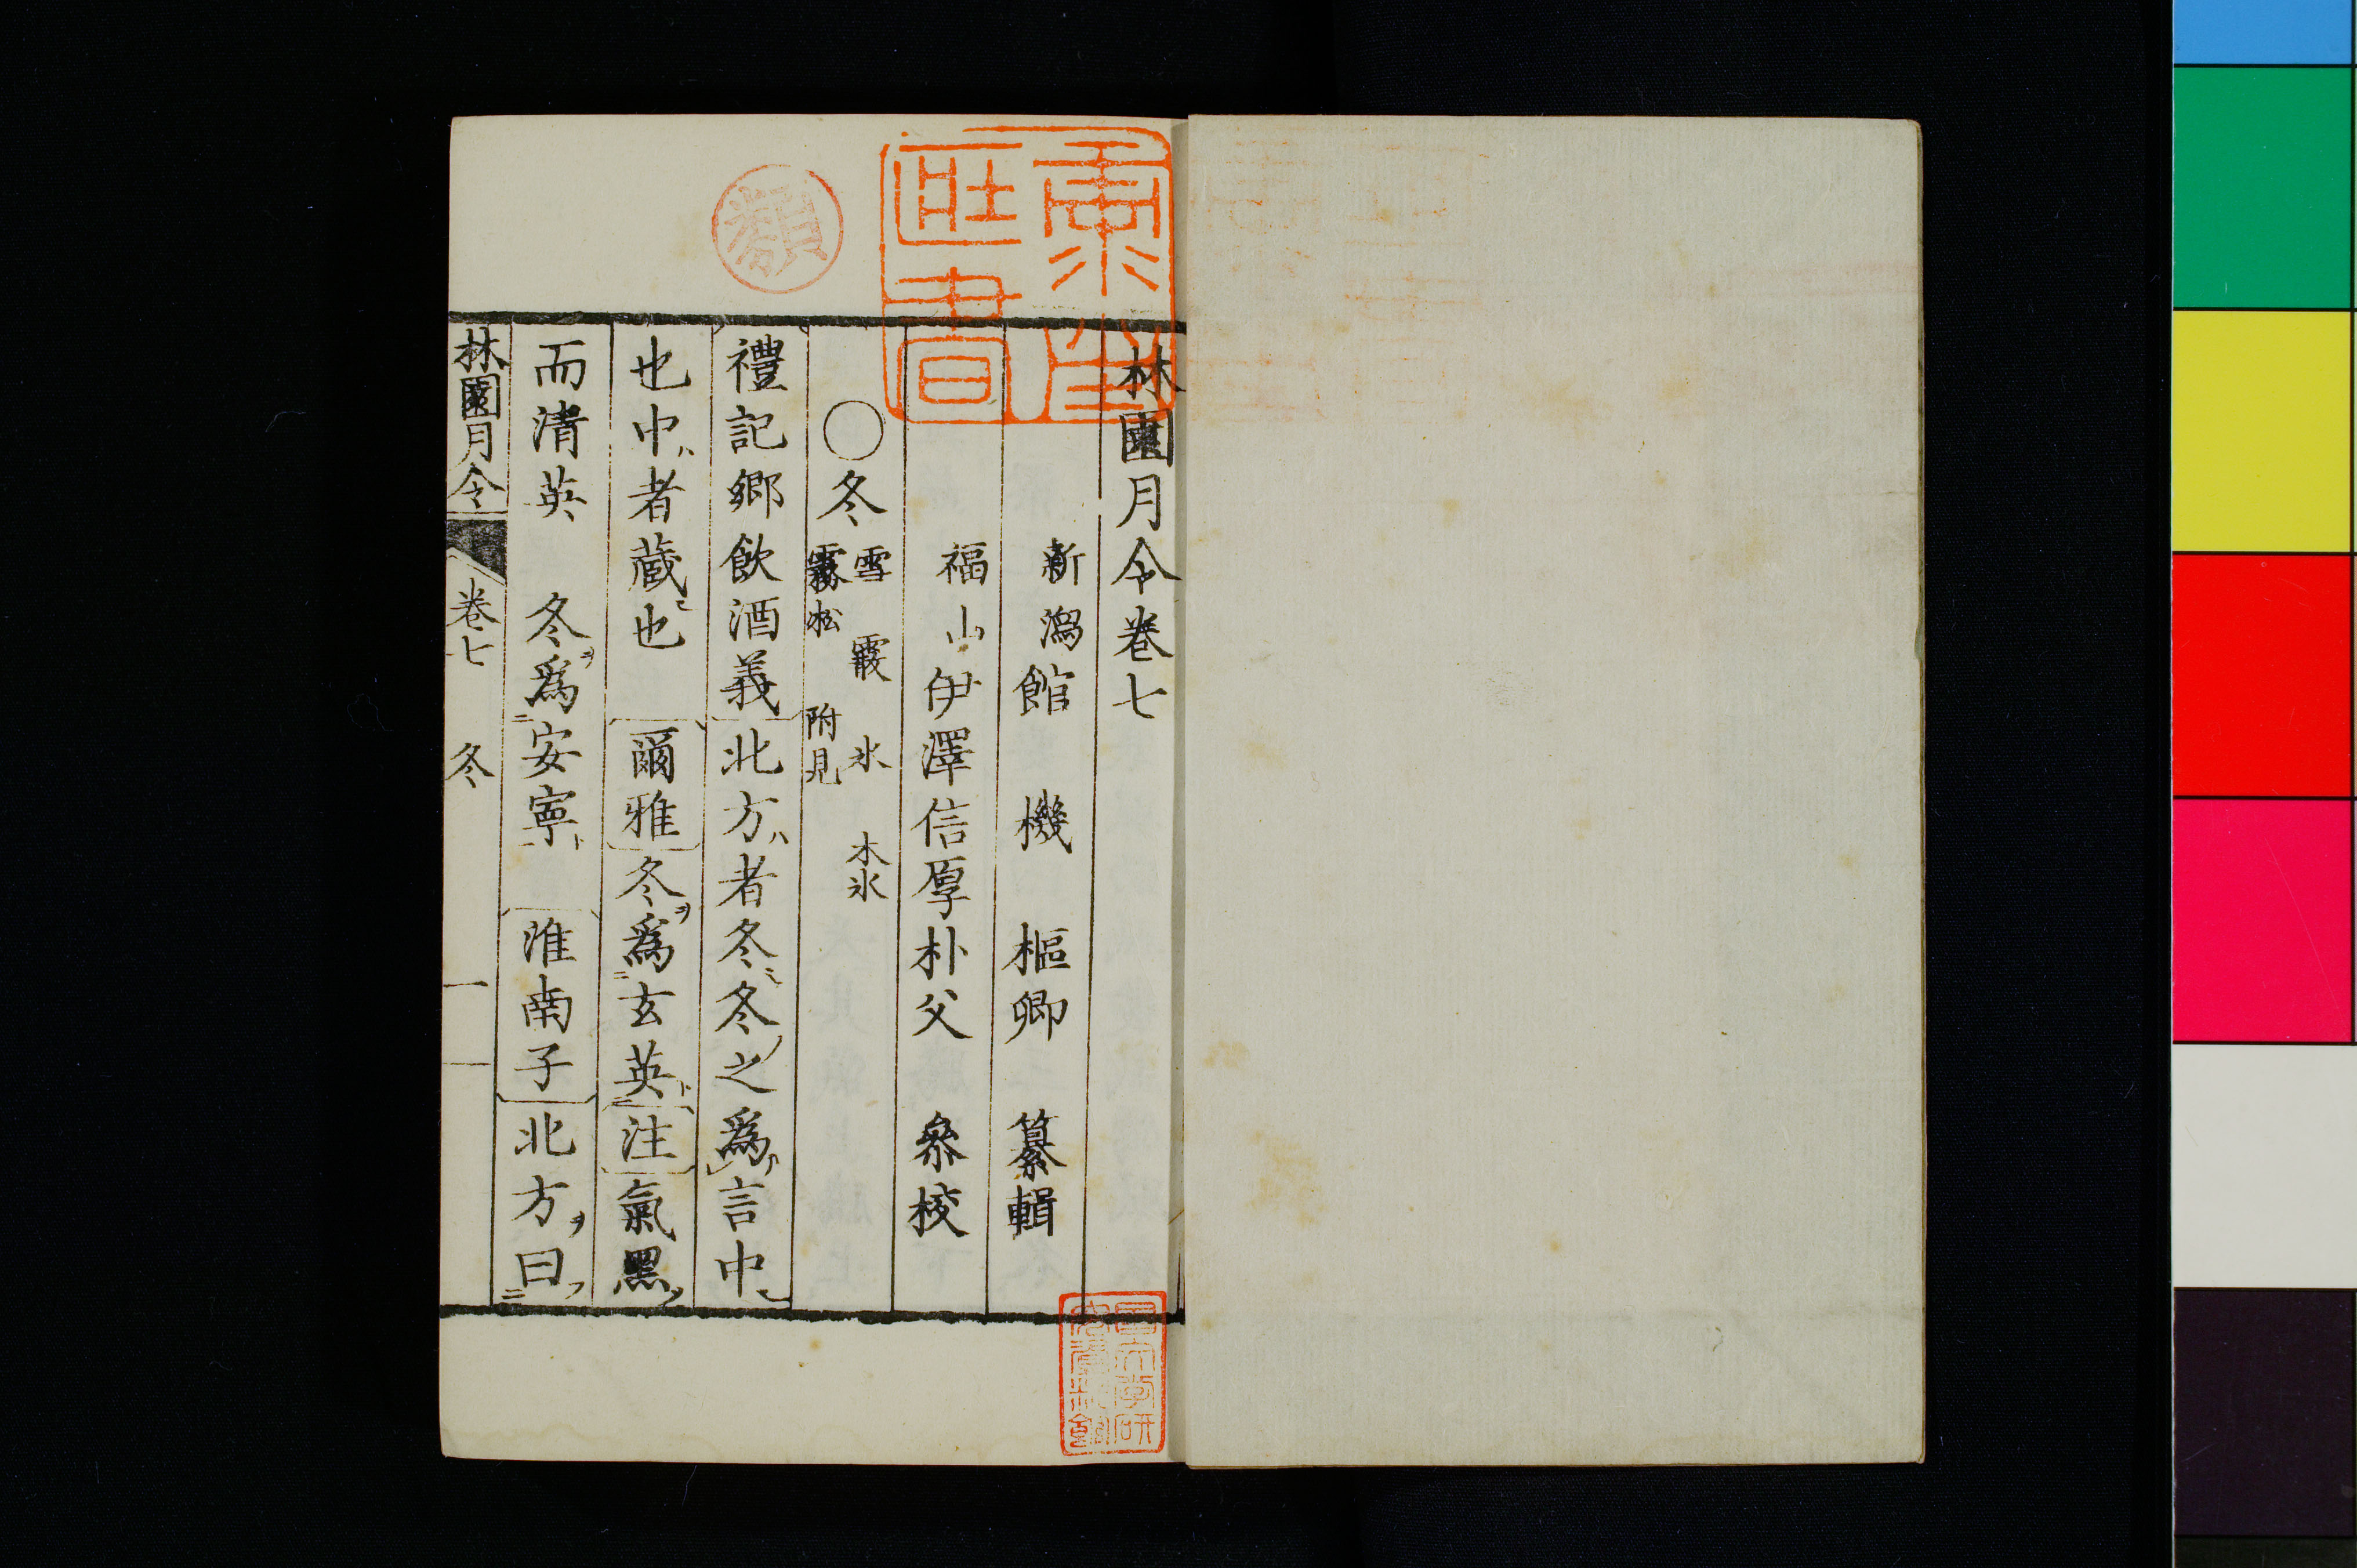 林園月令卷七
新潟館 機 樞卿 纂輯
福山伊澤信厚朴父 參校
○冬 雪 霰 氷 木氷
霧淞 附見
禮記鄉飲酒義北方者冬冬之爲言中
也中者藏也 爾雅冬爲玄英注氣黑
而清英 冬爲安寧 淮南子北方曰
林園月令 卷七 冬 一
類